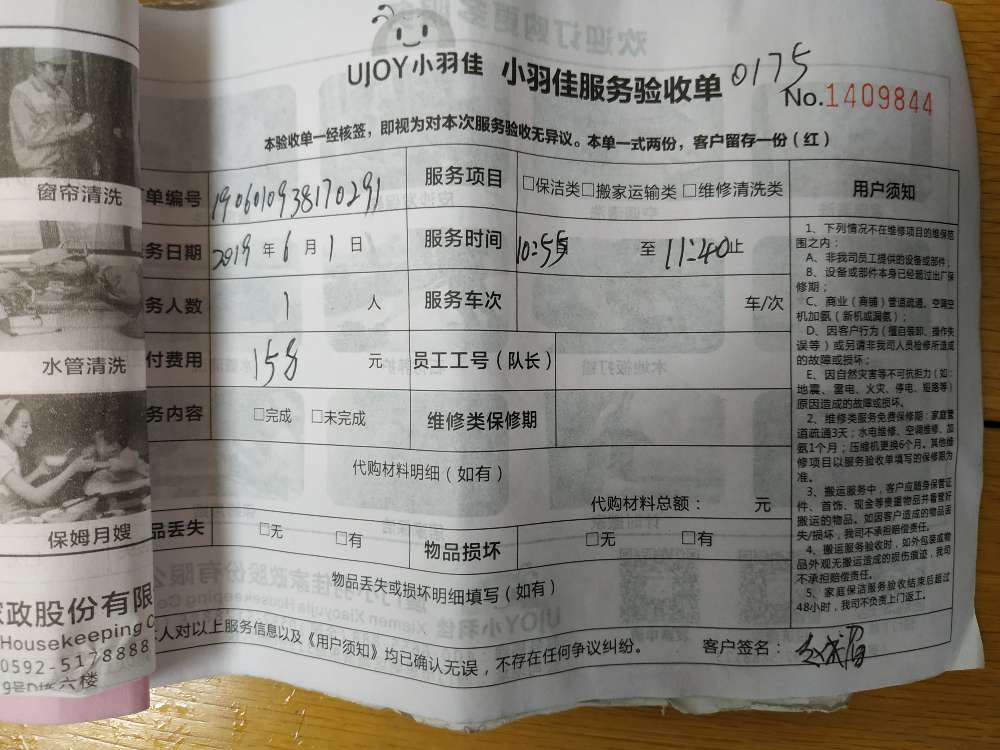 UJOY小羽佳 小羽佳服务验收单 0175
No.1409844
本验收单一经核签，即视为对本次服务验收无异议。本单一式两份，客户留存一份（红）
单编号 1906010938170291 服务项目 □保洁类□搬家运输类 □维修清洗类
务日期 2019 年 6 月 1 日 服务时间 10:55 至 11:40止
务人数 1 人 服务车次 车/次
付费用 158 元 员工工号（队长）
务内容 □完成 □未完成 维修类保修期
代购材料明细（如有）
代购材料总额： 元
品丢失 □无 □有 物品损坏 □无 □有
物品丢失或损坏明细填写（如有）
人对以上服务信息以及《用户须知》均已确认无误，不存在任何争议纠纷。 客户签名：
用户须知
1、下列情况不在维修项目的维保范
围之内：
A、非我司员工提供的设备或部件；
B、设备或部件本身已经超过出厂保
修期；
C、商业（商铺）管道疏通，空调空
机加氨（新机或漏氨）；
D、因客户行为（擅自装卸、操作失
误等）或另请非我司人员检修所造成
的故障或损坏；
E、因自然灾害等不可抗拒力（如：
地震、雷电、火灾、停电、短路等）
原因造成的故障或损坏。
2、维修类服务免费保修期：家庭管
道疏通3天；水电维修、空调维修、加
氨1个月；压缩机更换6个月。其他维
修项目以服务验收单填写的保修期为
准。
3、搬运服务中，客户应随身保管证
件、首饰、现金等贵重物品并看管好
搬运的物品。如因客户造成的物品丢
失/损坏，我司不承担赔偿责任。
4、搬运服务验收时，如外包装或物
品外观无搬运造成的损伤痕迹，我司
不承担赔偿责任。
5、家庭保洁服务验收结束后超过
48小时，我司不负责上门返工。
窗帘清洗
水管清洗
保姆月嫂
家政股份有限
Housekeeping C
0592-5178888
六楼